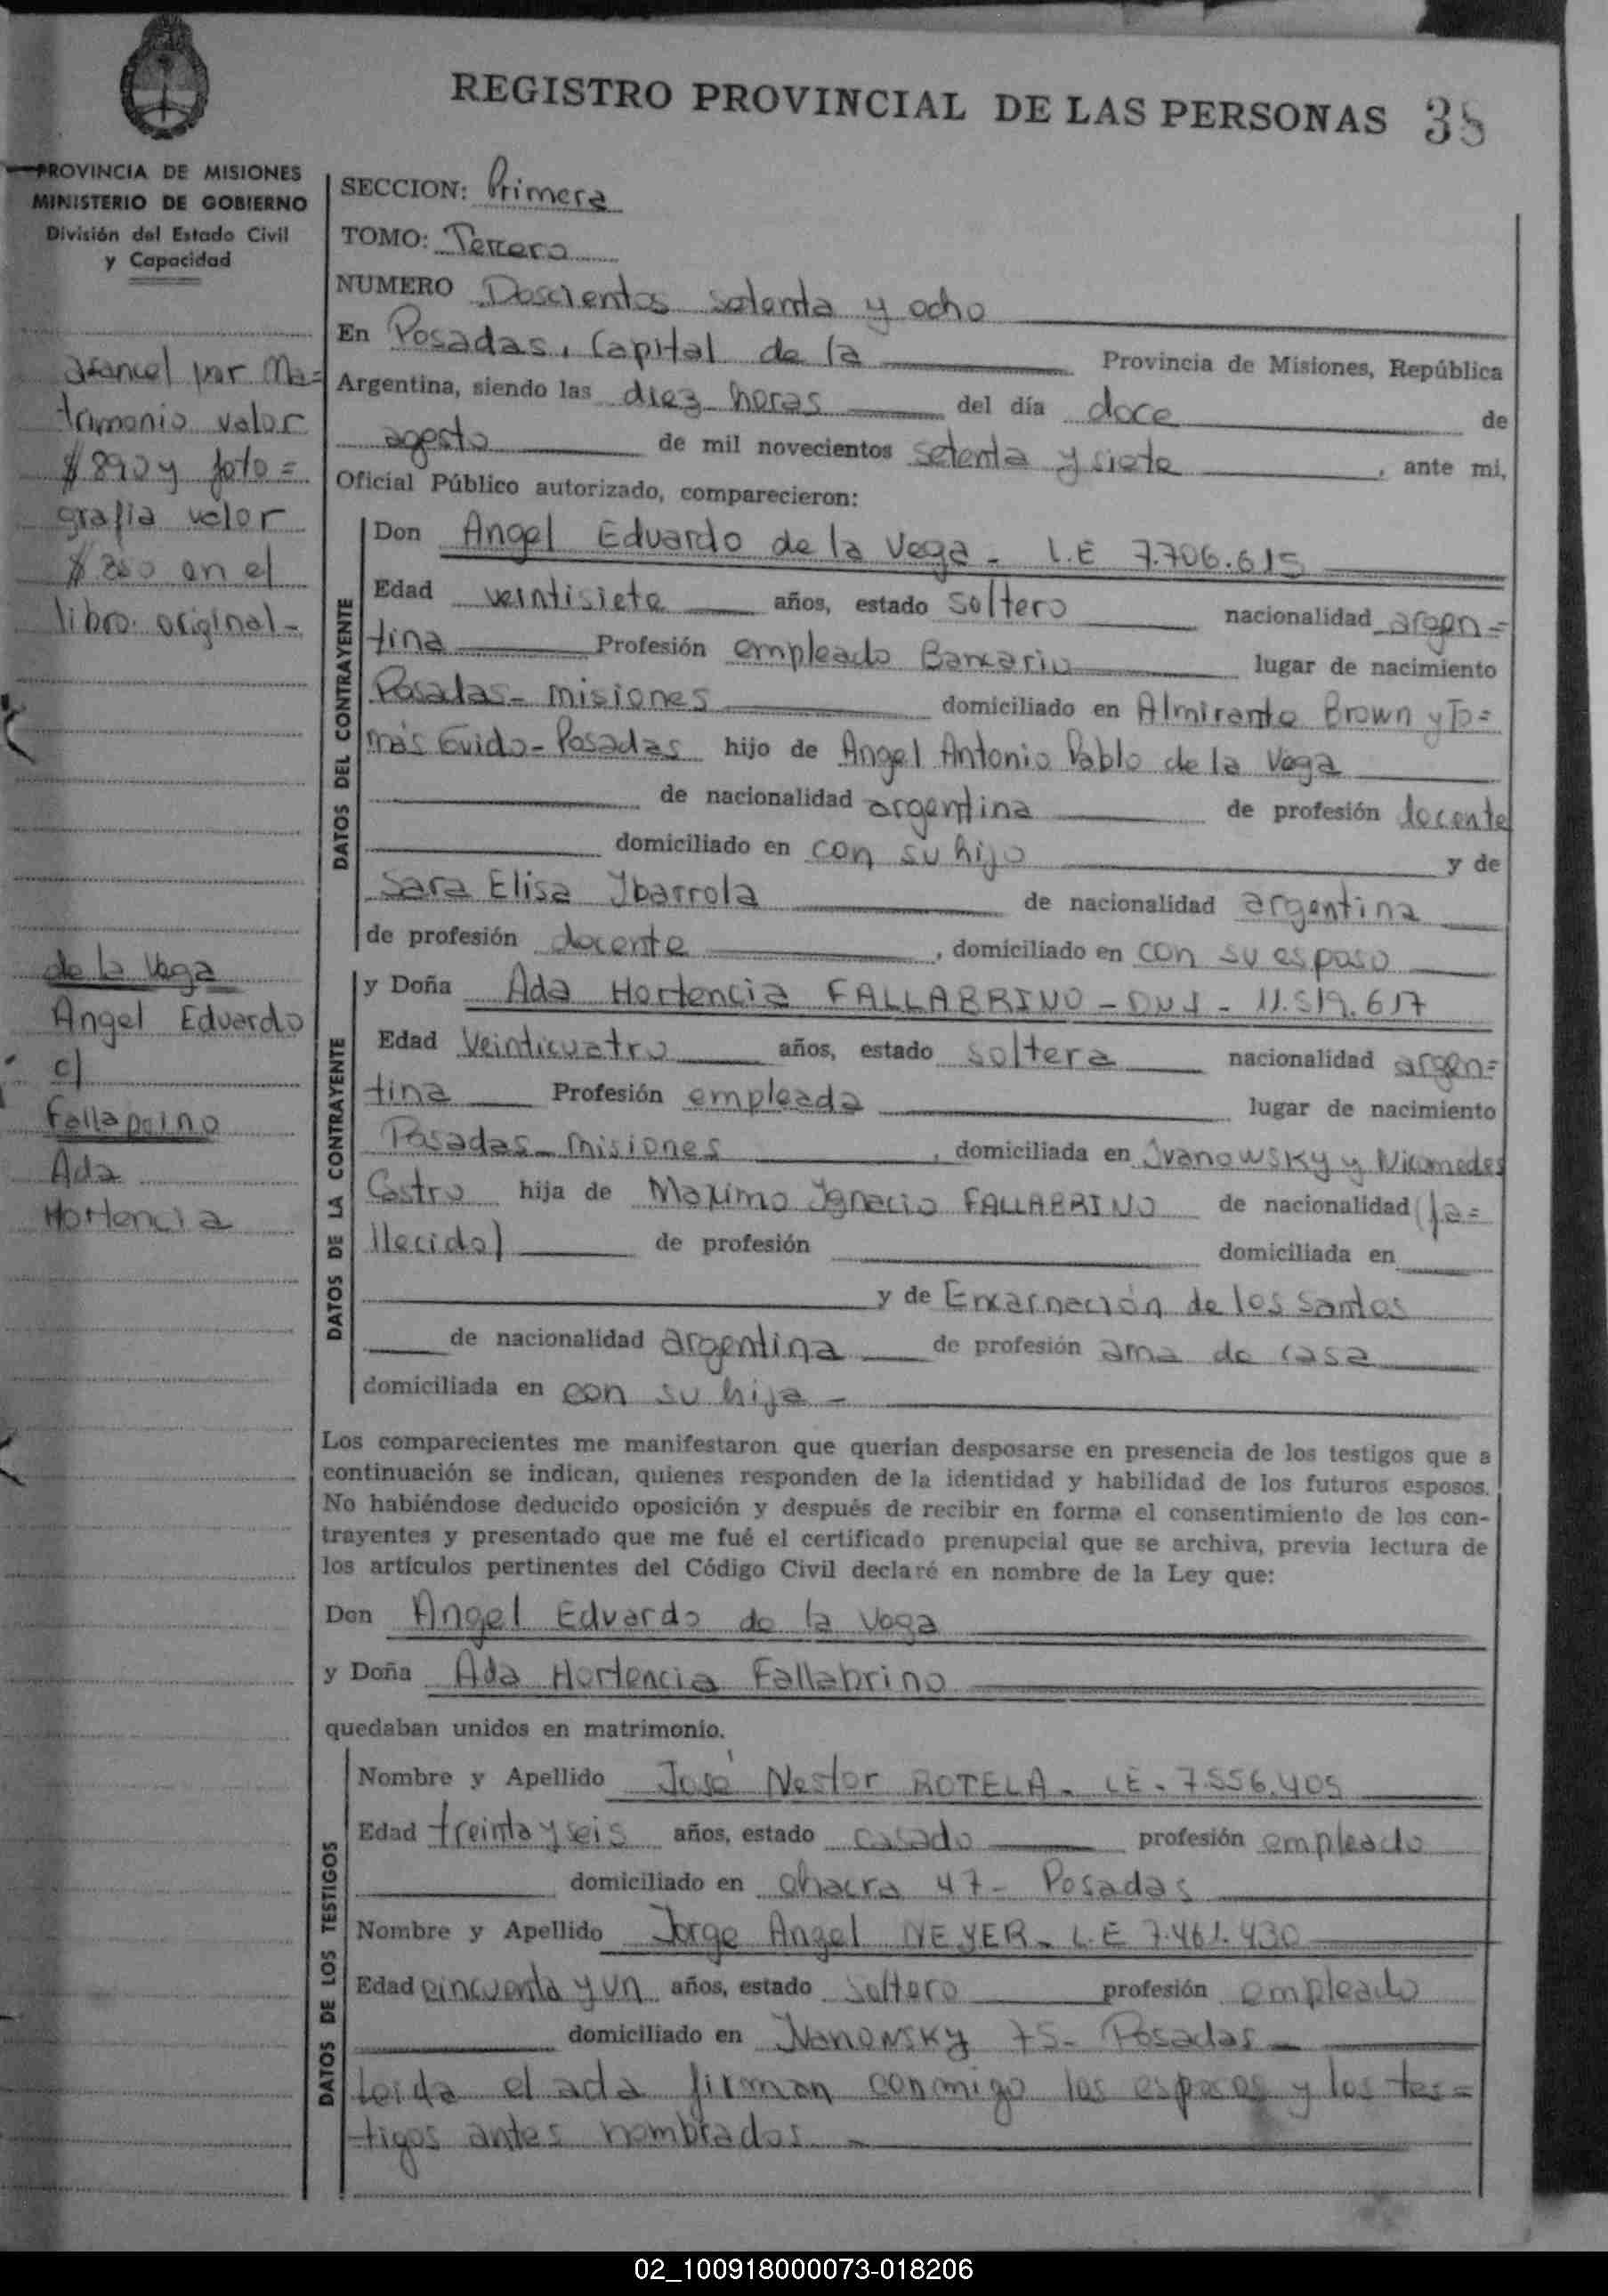 REGISTRO PROVINCIAL DE LAS PERSONAS 38
PROVINCIA DE MISIONES
MINISTERIO DE GOBIERNO
División del Estado Civil
y Capacidad
arancel por Ma=
trimonio valor
$ 890 y foto=
grafia valor
$ 350 en el
libro original-
de la Vega
Angel Eduardo
c/
Fallabrino
Ada
Hortencia
SECCION: Primera
TOMO: Tercero
NUMERO Doscientos setenta y ocho
En Posadas, Capital de la Provincia de Misiones, República
Argentina, siendo las diez horas del día doce de
agosto de mil novecientos setenta y siete, ante mi,
Oficial Público autorizado, comparecieron:
DATOS DEL CONTRAYENTE
Don Angel Eduardo de la Vega - L.E 7.706.615
Edad veintisiete años, estado soltero nacionalidad argen=
tina Profesión empleado Bancario lugar de nacimiento
Posadas - misiones domiciliado en Almirante Brown y To=
más Guido - Posadas hijo de Angel Antonio Pablo de la Vega
de nacionalidad argentina de profesión docente
domiciliado en con su hijo y de
Sara Elisa Ybarrola de nacionalidad argentina
de profesión docente, domiciliado en con su esposo
DATOS DE LA CONTRAYENTE
y Doña Ada Hortencia FALLABRINO - DNI - 11.519.617
Edad Veinticuatro años, estado soltera nacionalidad argen=
tina Profesión empleada lugar de nacimiento
Posadas - misiones, domiciliada en Ivanowsky y Nicomedes
Castro hija de Maximo Ignacio FALLABRINO de nacionalidad (fa=
llecido) de profesión domiciliada en
y de Encarnación de los Santos
de nacionalidad argentina de profesión ama de casa
domiciliada en con su hija -
Los comparecientes me manifestaron que querían desposarse en presencia de los testigos que a
continuación se indican, quienes responden de la identidad y habilidad de los futuros esposos.
No habiéndose deducido oposición y después de recibir en forma el consentimiento de los con-
trayentes y presentado que me fué el certificado prenupcial que se archiva, previa lectura de
los artículos pertinentes del Código Civil declaré en nombre de la Ley que:
Don Angel Eduardo de la Vega
y Doña Ada Hortencia Fallabrino
quedaban unidos en matrimonio.
DATOS DE LOS TESTIGOS
Nombre y Apellido José Nestor ROTELA - LE - 7.556.405
Edad treinta y seis años, estado casado profesión empleado
domiciliado en chacra 47 - Posadas
Nombre y Apellido Jorge Angel NEYER - L.E 7.461.430
Edad cincuenta y un años, estado soltero profesión empleado
domiciliado en Ivanowsky 75 - Posadas -
Leida el acta firman conmigo los esposos y los tes=
tigos antes nombrados -
02_100918000073-018206